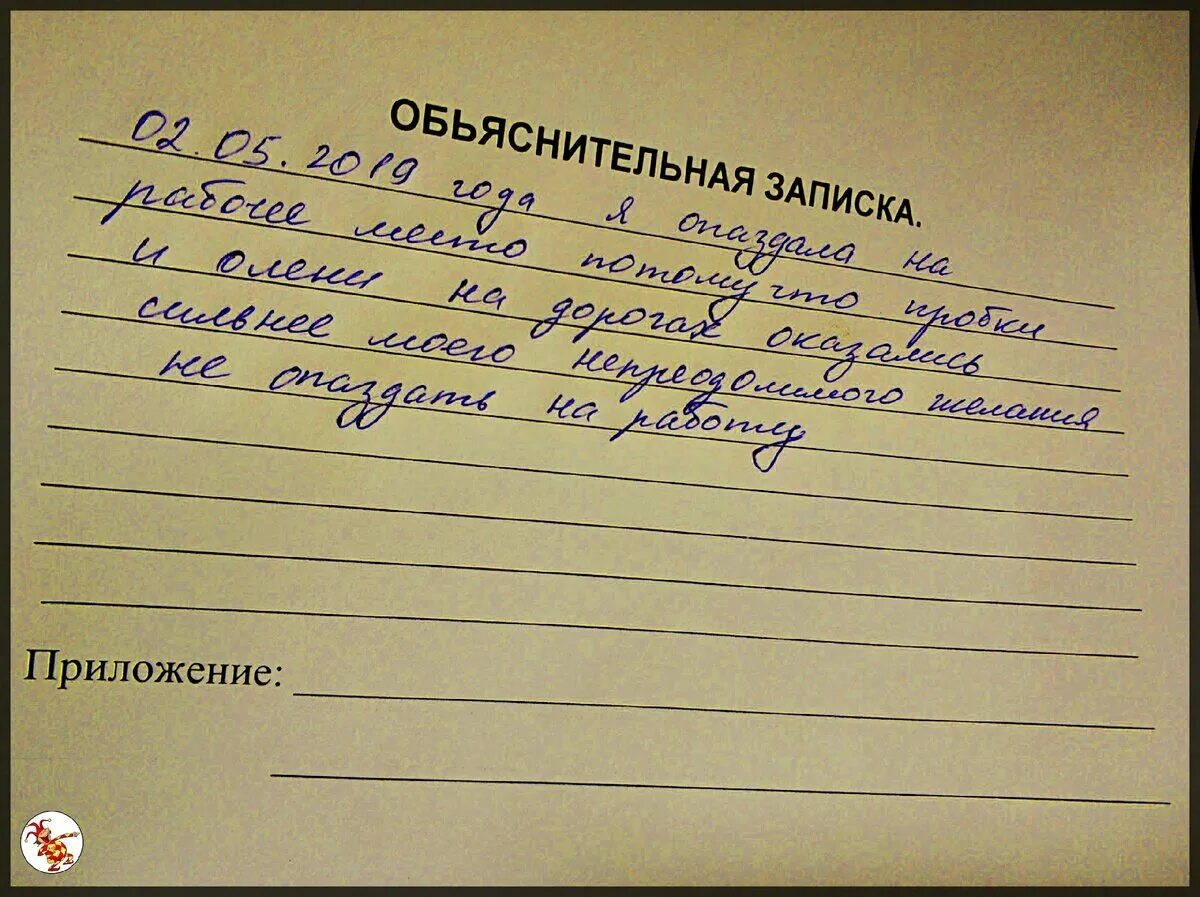 ОБЬЯСНИТЕЛЬНАЯ ЗАПИСКА.
02.05.2019 года я опаздала на
рабочее место потому что пробки
и олени на дорогах оказались
сильнее моего непреодолимого желания
не опаздать на работу
Приложение: